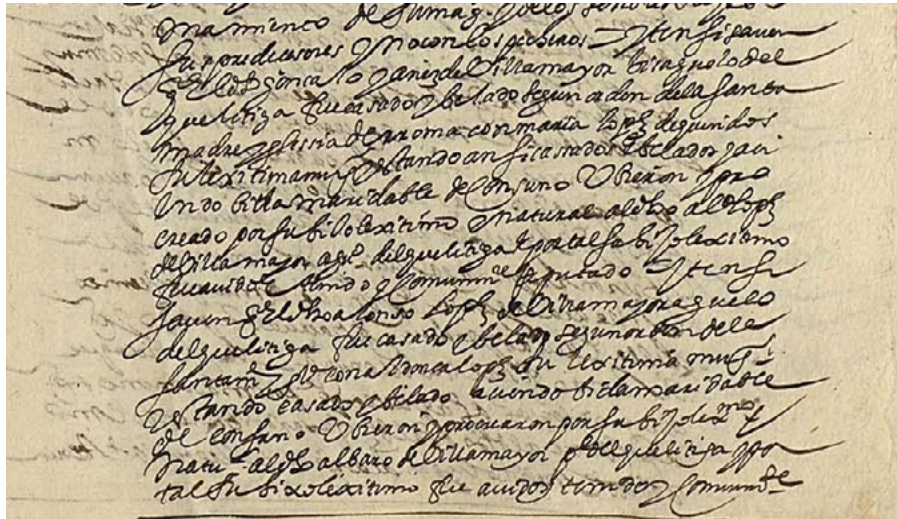 namiento de su mag. y de los señores Reyes
sus predecesores y no con los pecheros = Yten si saven
q el dho gonçalo yanez de Villamayor bisaguelo del
que litiga fue casado y belado segun orden de la santa
madre yglessia de rroma con maria lopz de guindos
su lexitima muger y estando ansi casados e belados y aci
endo bida maridable de consuno Vbieron y pro
crearo por su hijo lexitimo y natural al dho alo lopz
de Villamayor aguo del que litiga e por tal su hijo lexitimo
fue avido e tenido y comunmte rreputado = Yten si
saven q el dho alonso lopz de Villamayor aguelo
del que litiga fue casado y belado segun orden de la
santa me ygla con aldonca lopz su lexitima muger
estando casado y belado aciendo bida maridable
de consuno Vbieron y procrearon por su hijo lexmo y
natul al dho albaro de Villamayor pe del que litiga y por
tal su hixo lexitimo fue avido y tenido y comunmte